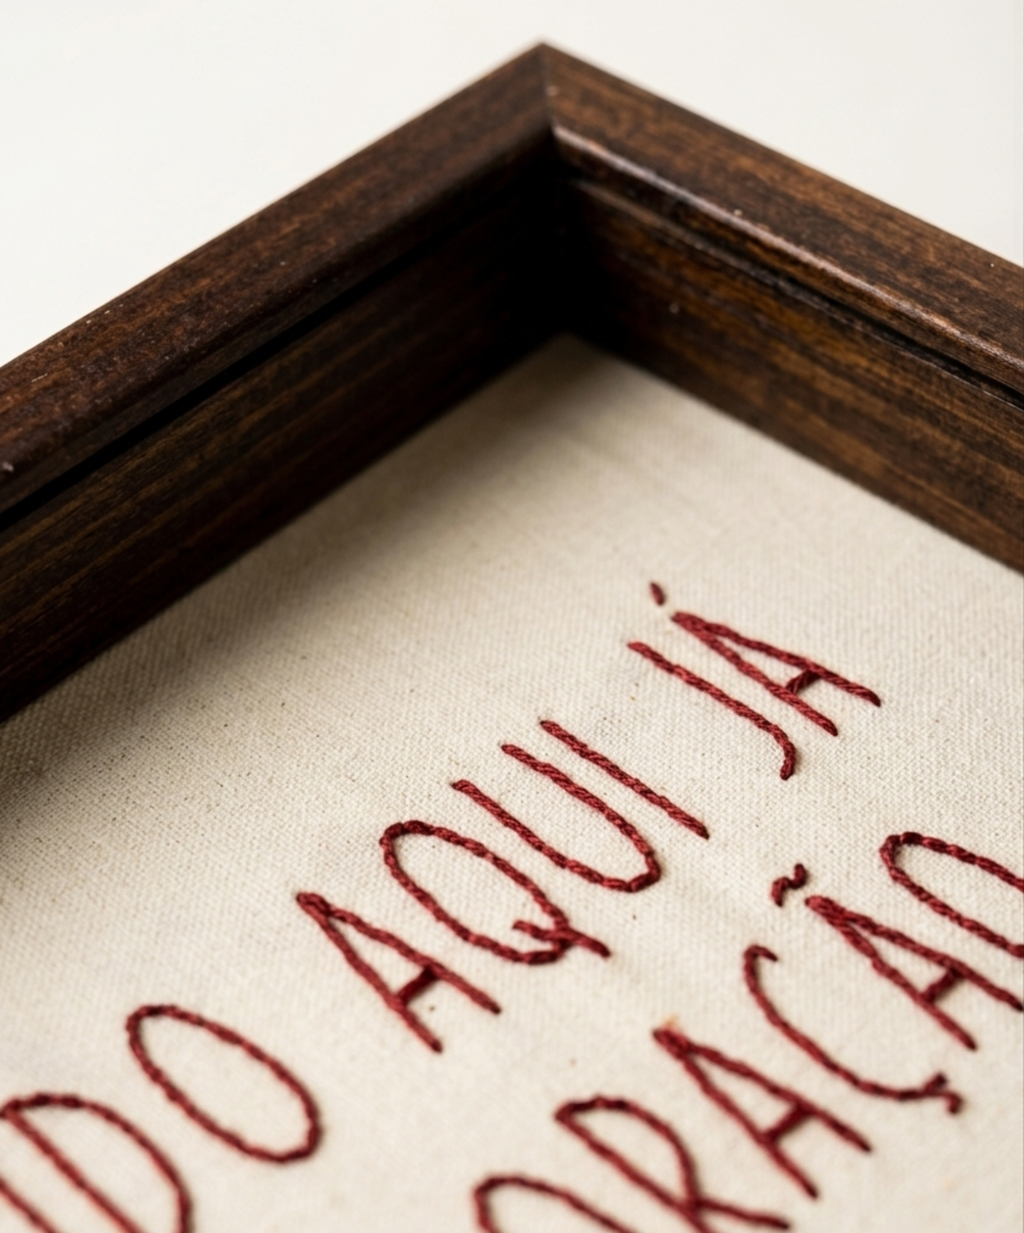 DO AQUI JÁ
ORAÇÃO